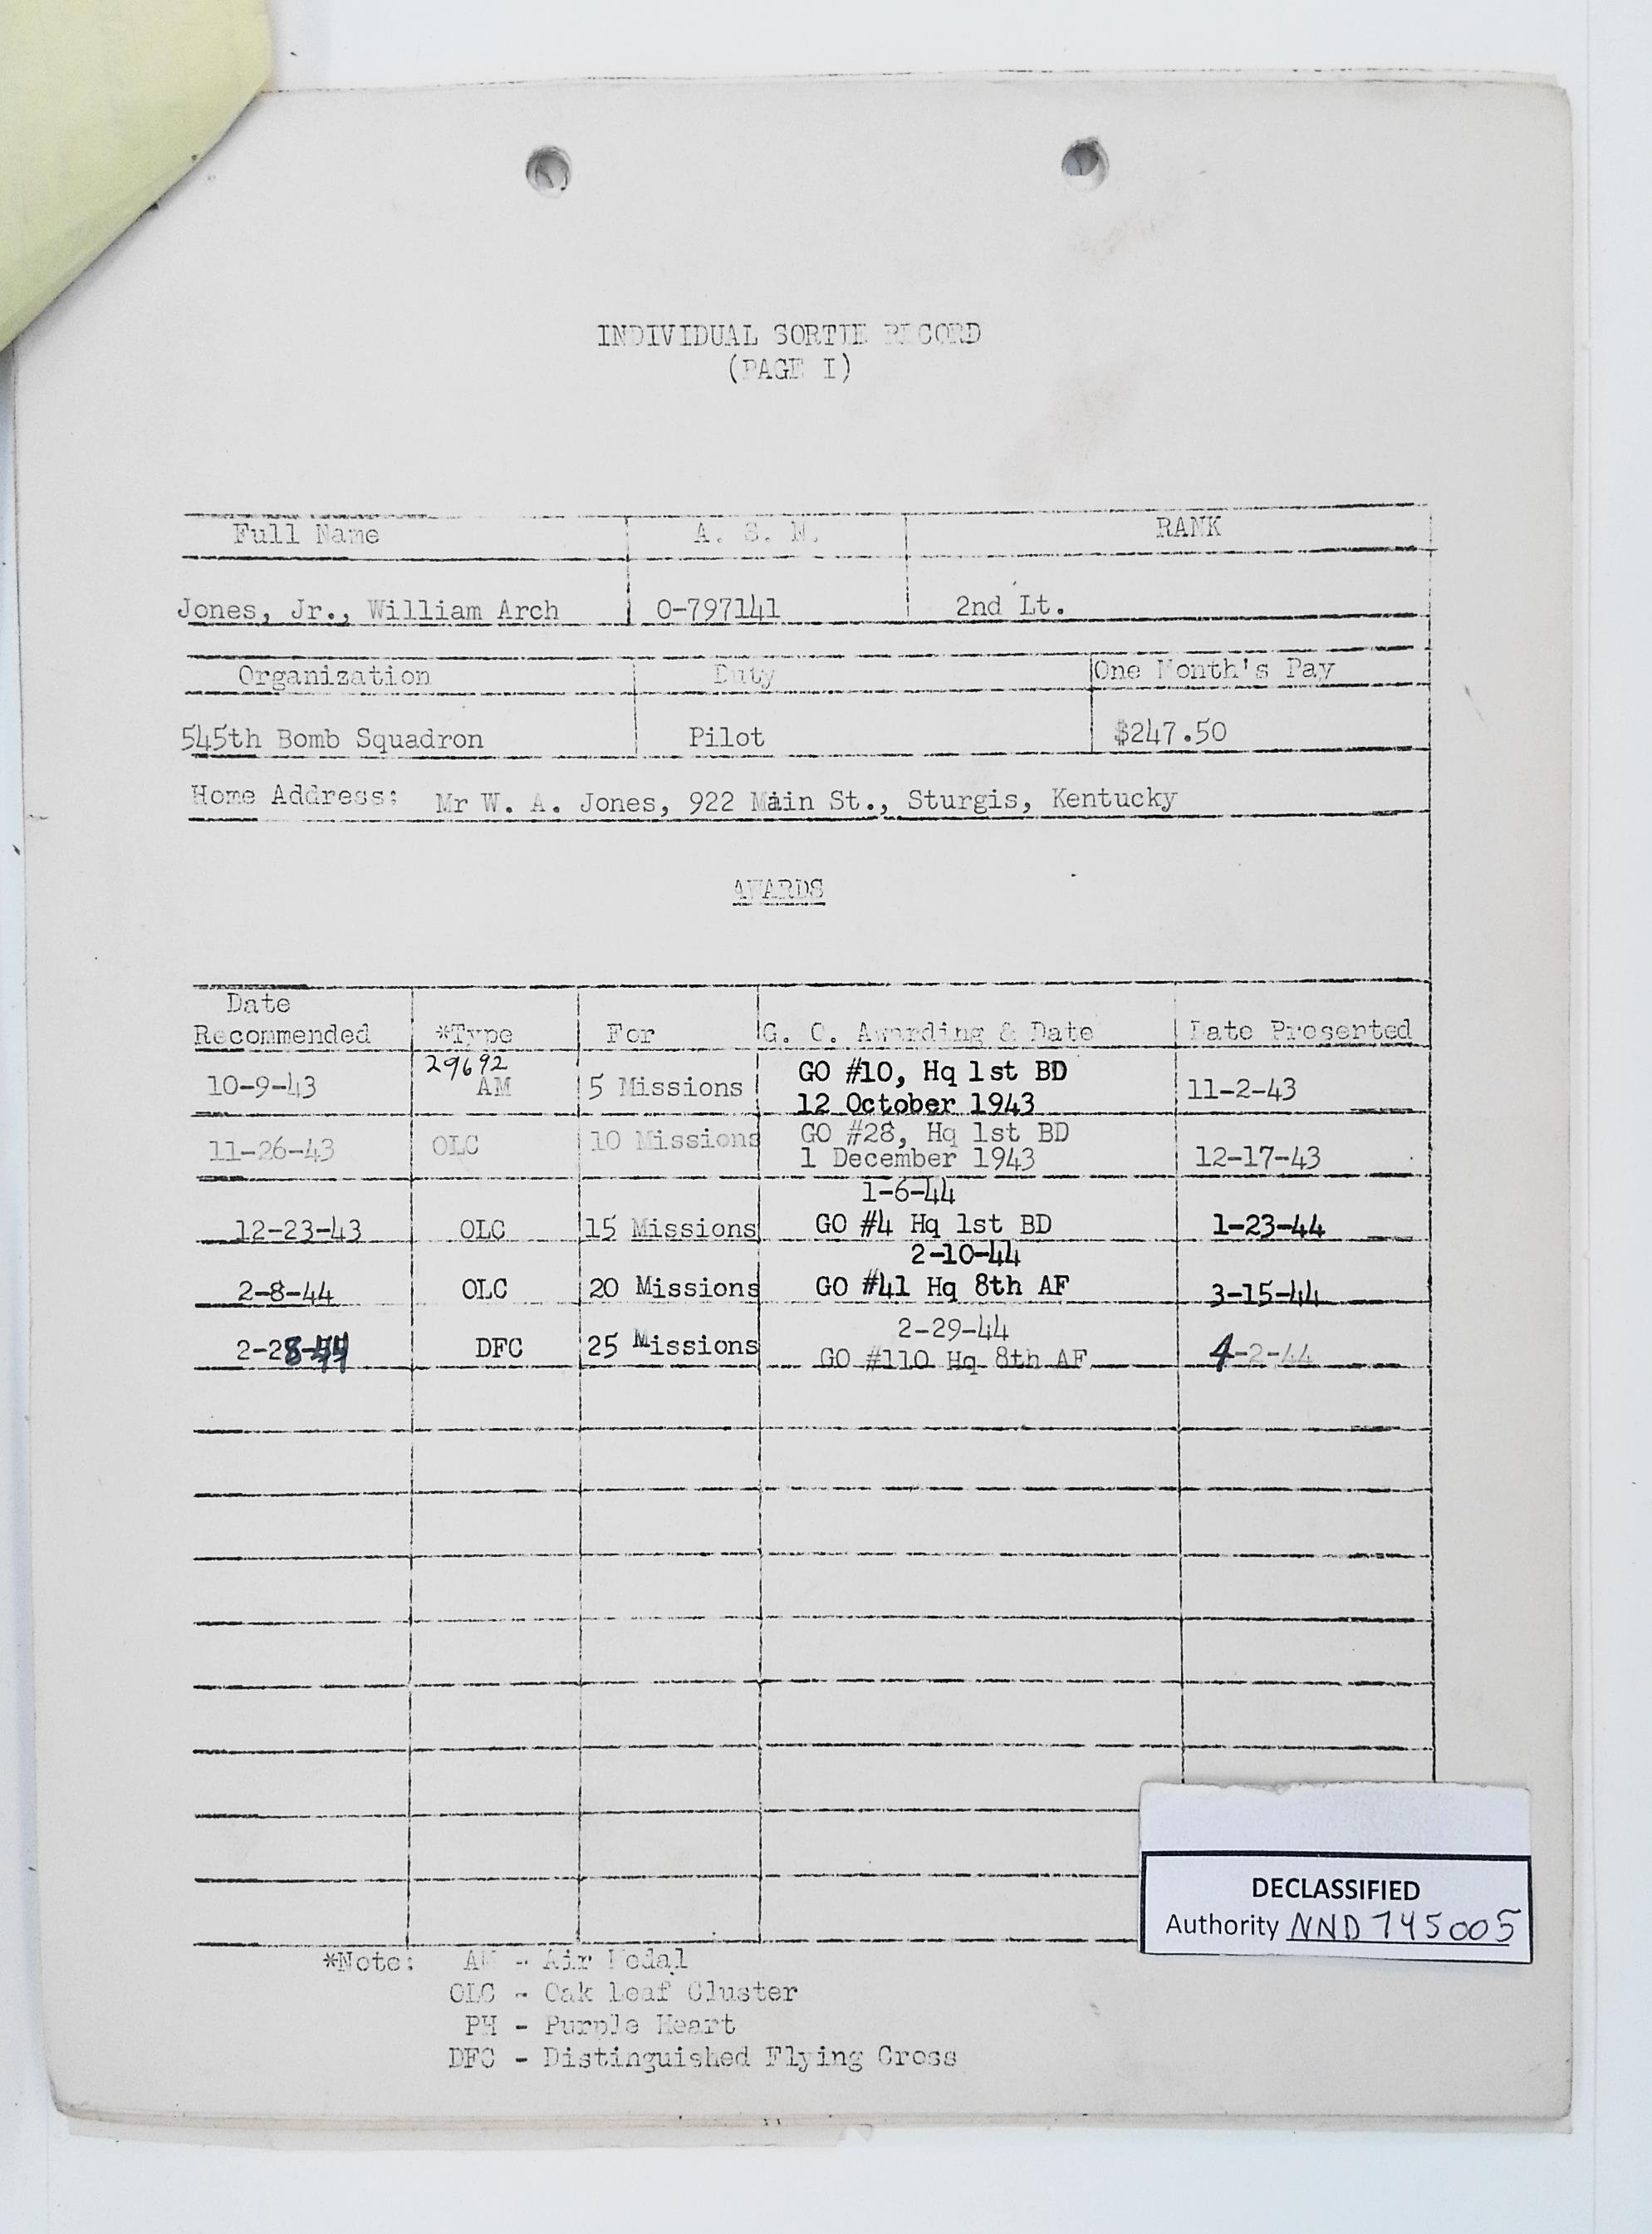 INDIVIDUAL SORTIE RECORD
(PAGE I)
Full Name A. S. N. RANK
Jones, Jr., William Arch O-797141 2nd Lt.
Organization Duty One Month's Pay
545th Bomb Squadron Pilot $247.50
Home Address: Mr W. A. Jones, 922 Main St., Sturgis, Kentucky
AWARDS
Date
Recommended *Type For G. O. Awarding & Date Date Presented
29692
10-9-43 AM 5 Missions GO #10, Hq 1st BD 11-2-43
12 October 1943
11-26-43 OLC 10 Missions GO #28, Hq 1st BD
1 December 1943 12-17-43
1-6-44
12-23-43 OLC 15 Missions GO #4 Hq 1st BD 1-23-44
2-10-44
2-8-44 OLC 20 Missions GO #41 Hq 8th AF 3-15-44
2-29-44
2-28-44 DFC 25 Missions GO #110 Hq 8th AF 4-2-44
*Note: AM - Air Medal
OLC - Oak Leaf Cluster
PH - Purple Heart
DFC - Distinguished Flying Cross
DECLASSIFIED
Authority NND 745005